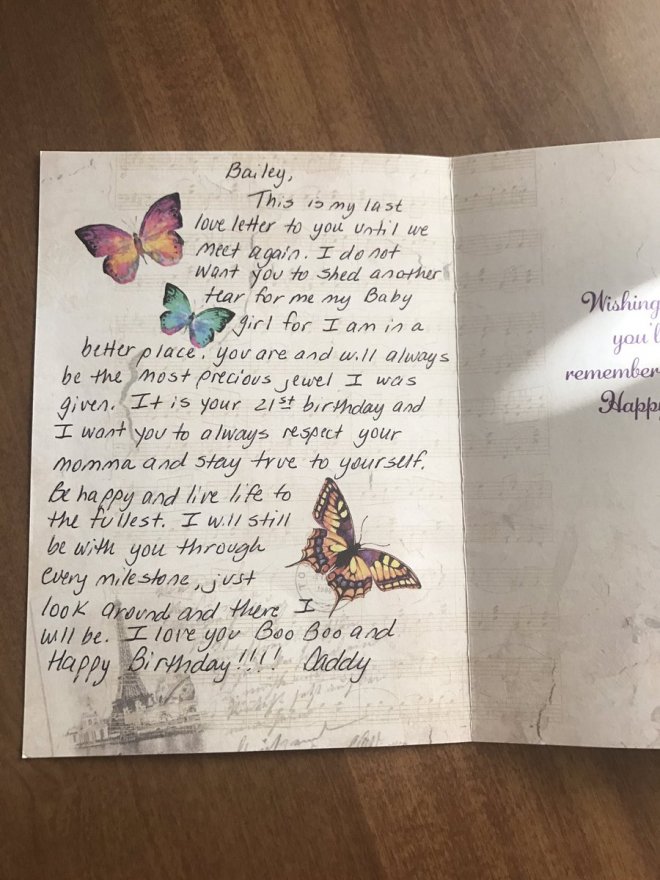 Bailey,
This is my last
love letter to you until we
meet again. I do not
want you to shed another
tear for me my Baby
girl for I am in a
better place. you are and will always
be the most precious jewel I was
given. It is your 21st birthday and
I want you to always respect your
momma and stay true to yourself.
Be happy and live life to
the fullest. I will still
be with you through
every milestone, just
look around and there I
will be. I love you Boo Boo and
Happy Birthday!!!! Daddy
Wishing
you'l
remember
Happy